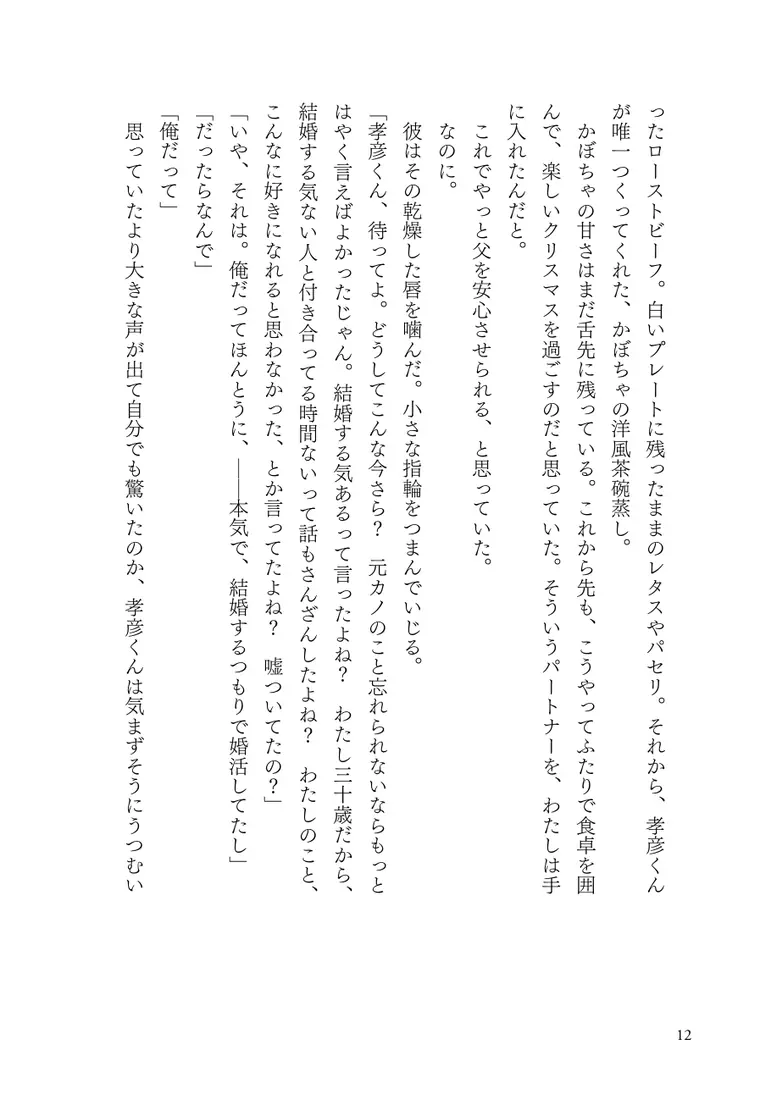 ったローストビーフ。白いプレートに残ったままのレタスやパセリ。それから、孝彦くん
が唯一つくってくれた、かぼちゃの洋風茶碗蒸し。
　かぼちゃの甘さはまだ舌先に残っている。これから先も、こうやってふたりで食卓を囲
んで、楽しいクリスマスを過ごすのだと思っていた。そういうパートナーを、わたしは手
に入れたんだと。
　これでやっと父を安心させられる、と思っていた。
　なのに。
　彼はその乾燥した唇を噛んだ。小さな指輪をつまんでいじる。
「孝彦くん、待ってよ。どうしてこんな今さら？　元カノのこと忘れられないならもっと
はやく言えばよかったじゃん。結婚する気あるって言ったよね？　わたし三十歳だから、
結婚する気ない人と付き合ってる時間ないって話もさんざんしたよね？　わたしのこと、
こんなに好きになれると思わなかった、とか言ってたよね？　嘘ついてたの？」
「いや、それは。俺だってほんとうに、――本気で、結婚するつもりで婚活してたし」
「だったらなんで」
「俺だって」
　思っていたより大きな声が出て自分でも驚いたのか、孝彦くんは気まずそうにうつむい
12